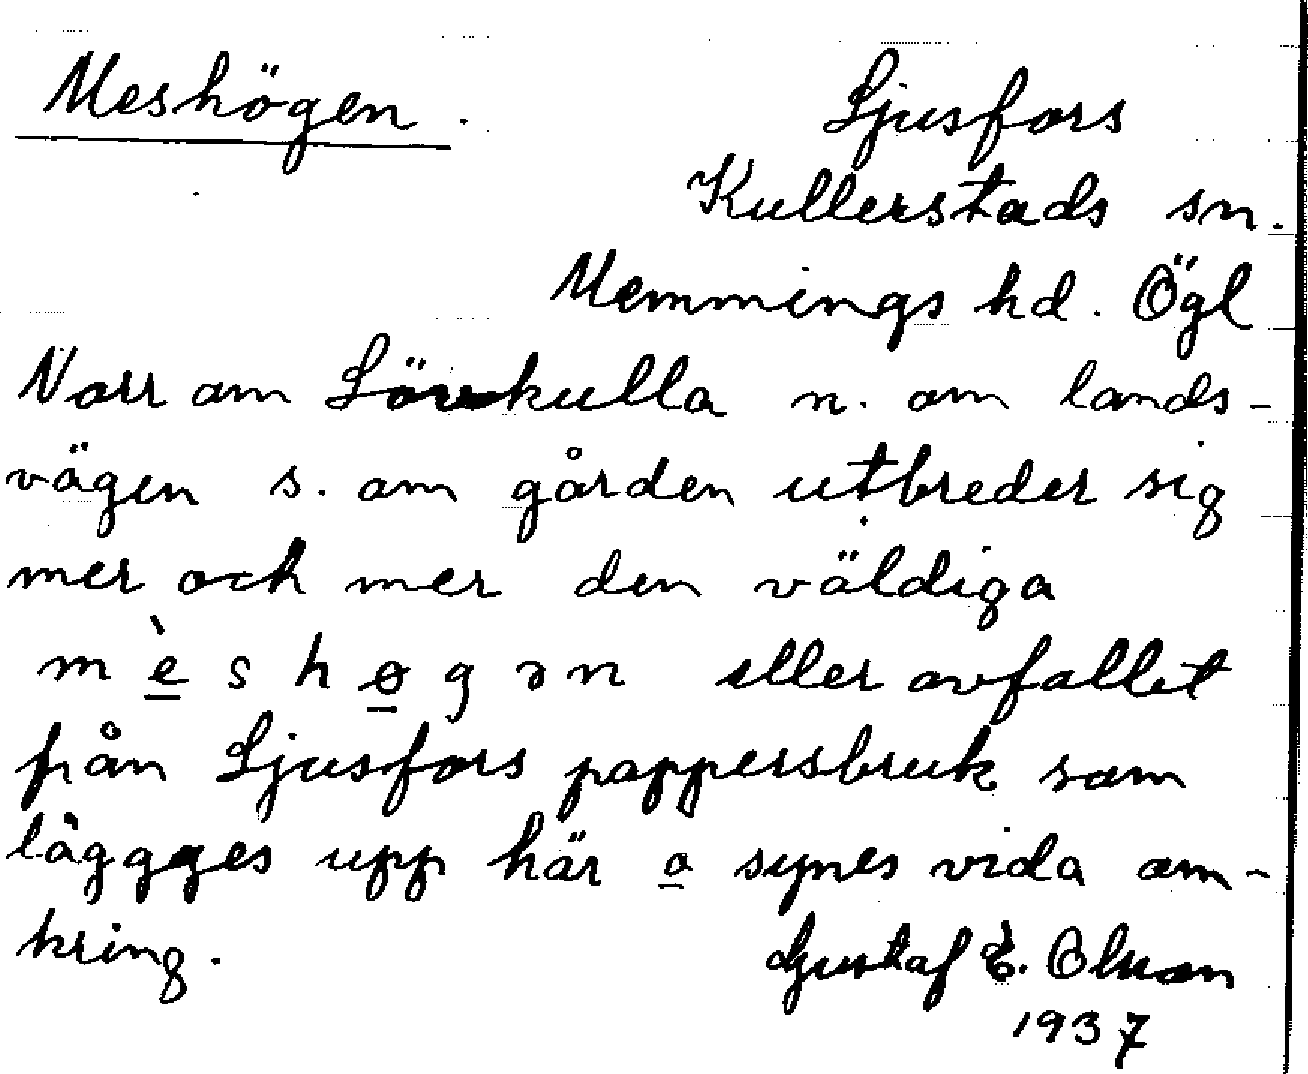 Meshögen.
Ljusfors
Kullerstads sn.
Memmings hd. Ögl
Norr om Lövkulla n. om lands-
vägen s. om gården utbreder sig
mer och mer den väldiga
mèshøgən eller avfallet
från Ljusfors pappersbruk som
lägges upp här o synes vida om-
kring.
Gustaf E. Olsson
1937